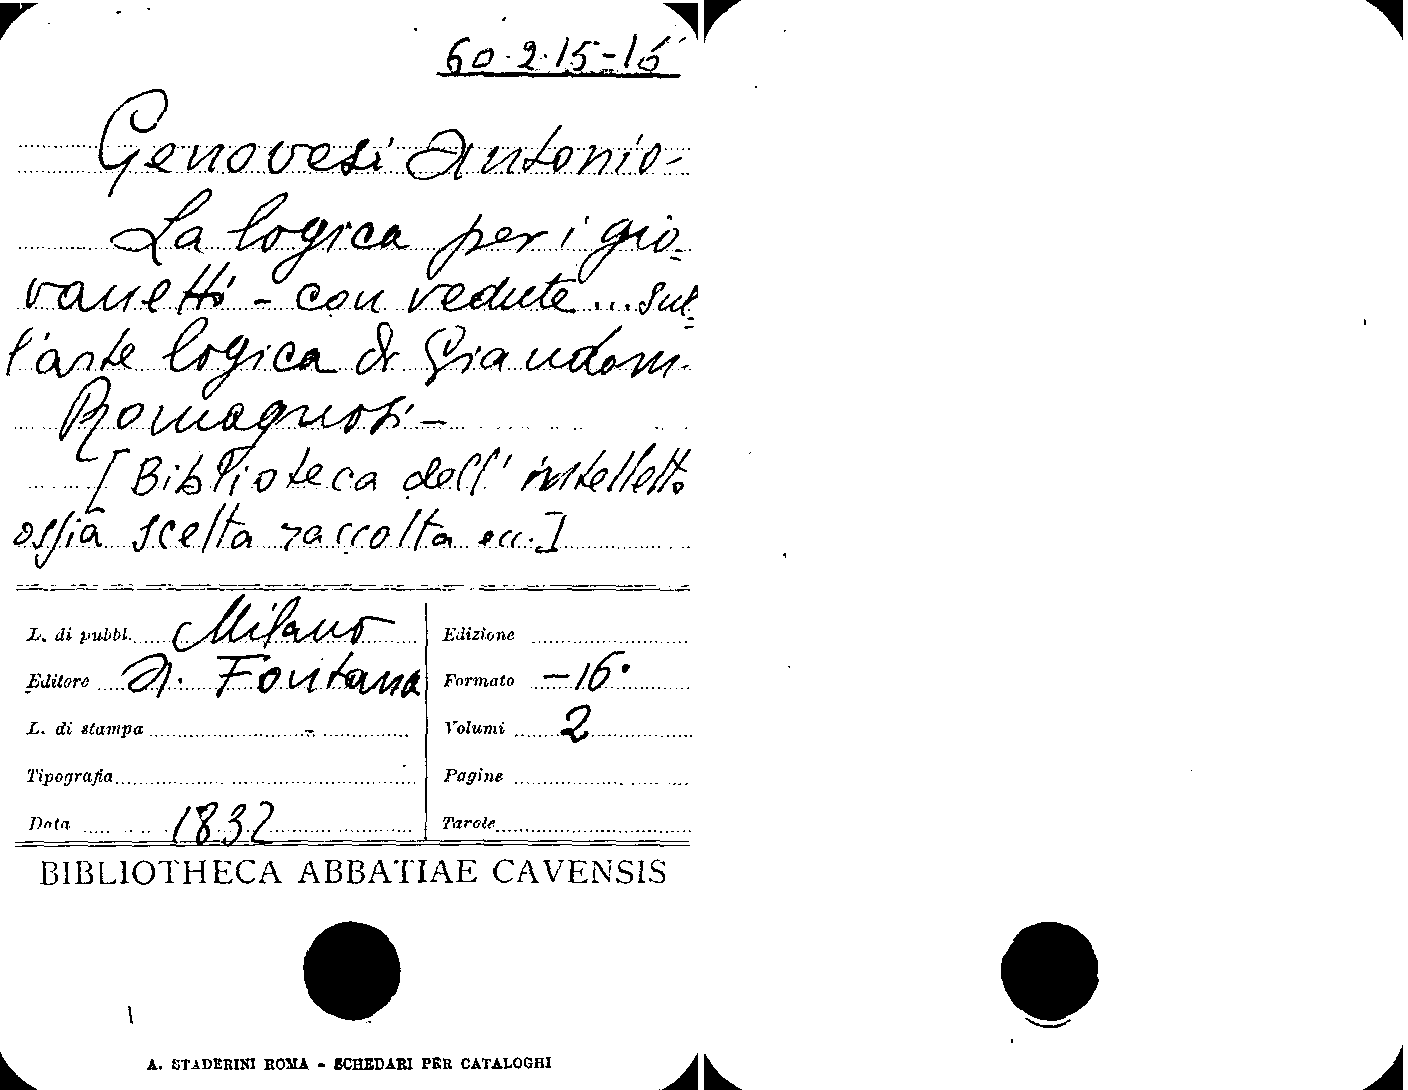 60.2.15-16
Genovesi Antonio-
La logica per i gio-
vanetti - con vedute... sul-
l'arte logica di Giandom.
Romagnosi -
[Biblioteca dell'intelletto
ossia scelta raccolta ecc.]
L. di pubbl. Milano
Editore A. Fontana
L. di stampa
Tipografia
Data 1832
Edizione
Formato -16°
Volumi 2
Pagine
Tavole
BIBLIOTHECA ABBATIAE CAVENSIS
A. STADERINI ROMA - SCHEDARI PER CATALOGHI